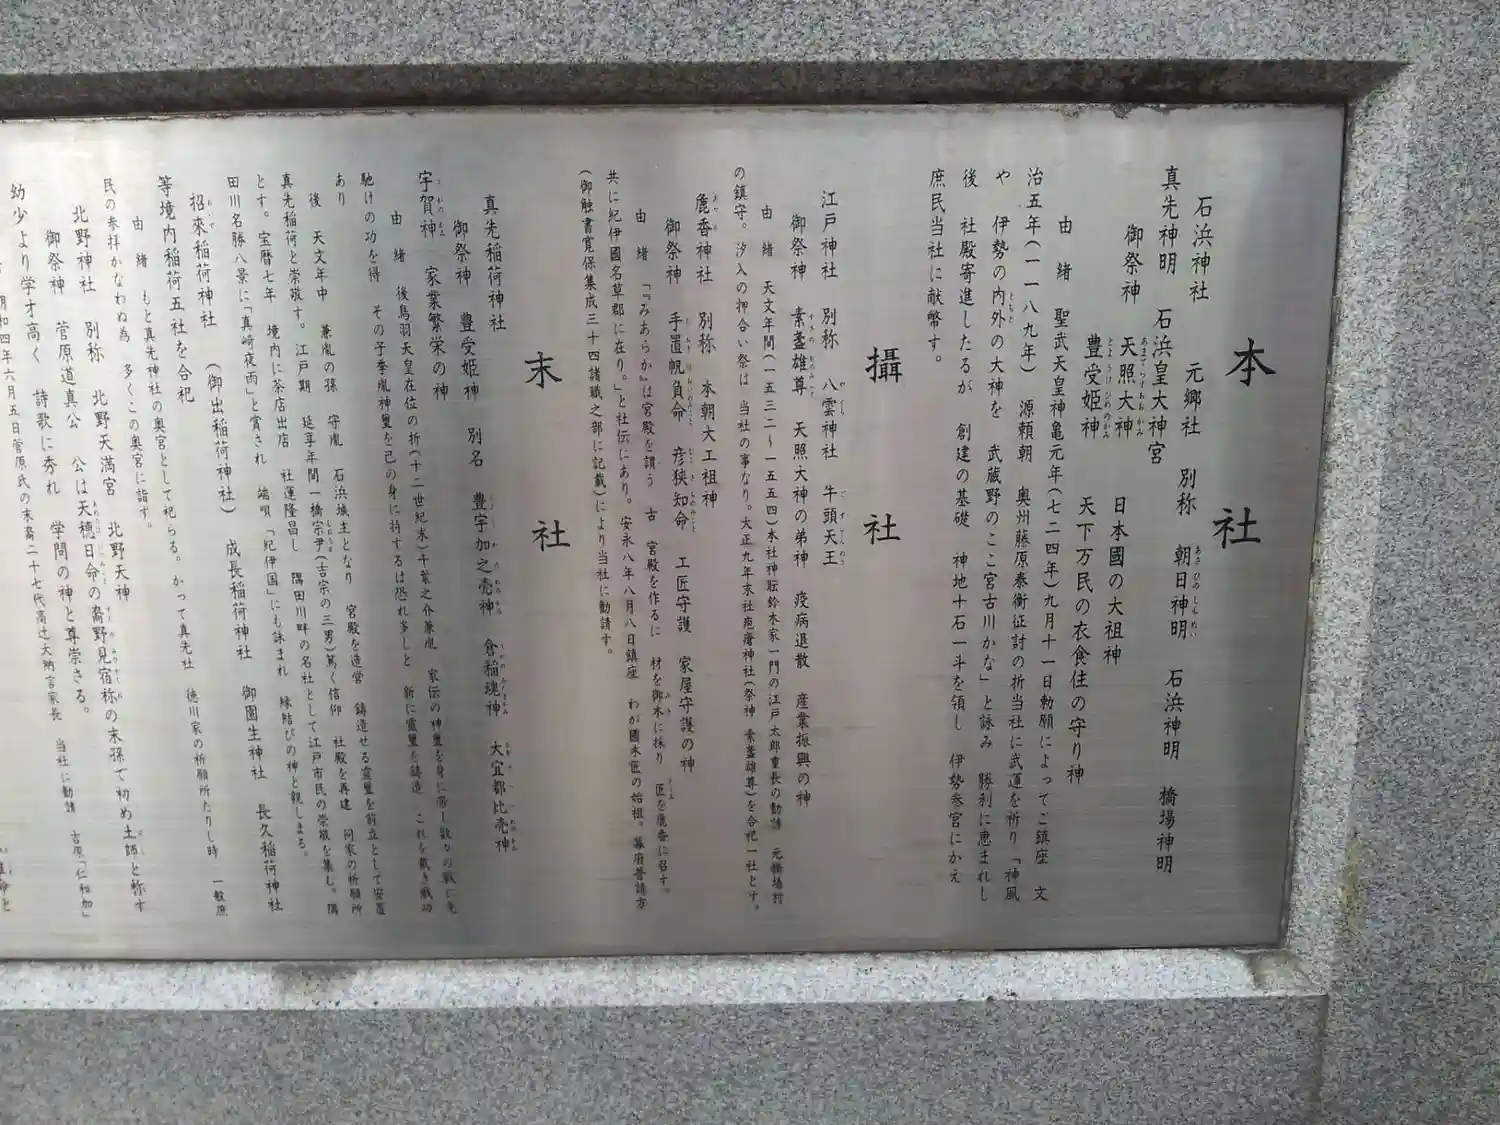 本社
石浜神社　元郷社　別称　朝日神明　石浜神明　橋場神明
真先神明　石浜皇大神宮
御祭神　天照大神　日本國の大祖神
豊受姫神　天下万民の衣食住の守り神
由緒　聖武天皇神亀元年(七二四年)九月十一日勅願によってご鎮座　文
治五年(一一八九年)　源頼朝　奥州藤原泰衡征討の折当社に武運を祈り「神風
や　伊勢の内外の大神を　武蔵野のここ宮古川かな」と詠み　勝利に恵まれし
後　社殿寄進したるが　創建の基礎　神地十石一斗を領し　伊勢参宮にかえ
庶民当社に献幣す。
攝社
江戸神社　別称　八雲神社　牛頭天王
御祭神　素盞雄尊　天照大神の弟神　疫病退散　産業振興の神
由緒　天文年間(一五三二～一五五四)本社神職鈴木家一門の江戸太郎重長の勧請　元橋場村
の鎮守。汐入の押合い祭は　当社の事なり。大正九年末社疱瘡神社(祭神　素盞雄尊)を合祀一社とす。
麁香神社　別称　本朝大工祖神
御祭神　手置帆負命　彦狭知命　工匠守護　家屋守護の神
由緒　「『みあらか』は宮殿を謂う　古　宮殿を作るに　材を御木に採り　匠を麁香に召す。
共に紀伊國名草郡に在り。」と社伝にあり。安永八年八月八日鎮座　わが國木匠の始祖。幕府普請方
(御触書寛保集成三十四諸職之部に記載)により当社に勧請す。
末社
真先稲荷神社
御祭神　豊受姫神　別名　豊宇加之売神　倉稲魂神　大宜都比売神
宇賀神　家業繁栄の神
由緒　後鳥羽天皇在位の折(十二世紀末)千葉之介兼胤　家伝の神璽を身に帯し数々の戦に先
馳けの功を得　その子季胤神璽を己の身に持するは恐れ多しと　新に霊璽を鋳造　これを戴き戦功
あり
後　天文年中　兼胤の孫　守胤　石浜城主となり　宮殿を造営　鋳造せる霊璽を前立として安置
真先稲荷と崇敬す。江戸期　延享年間一橋宗尹(吉宗の三男)篤く信仰　社殿を再建　同家の祈願所
とす。宝暦七年　境内に茶店出店　社運隆昌し　隅田川畔の名社として江戸市民の崇敬を集し。隅
田川名勝八景に「真崎夜雨」と賞され　端唄「紀伊国」にも詠まれ　縁結びの神と親しまる。
招來稲荷神社　(御出稲荷神社)　成長稲荷神社　御園生神社　長久稲荷神社
等境内稲荷五社を合祀
由緒　もと真先神社の奥宮として祀らる。かって真先社　徳川家の祈願所たりし時　一般庶
民の参拝かなわぬ為　多くこの奥宮に詣す。
北野神社　別称　北野天満宮　北野天神
御祭神　菅原道真公　公は天穂日命の裔野見宿祢の末孫で初め土師と称す
幼少より学才高く　詩歌に秀れ　学問の神と尊崇さる。
明和四年六月五日菅原氏の末裔二十七代高辻大納言家長　当社に勧請　吉原「仁和加」